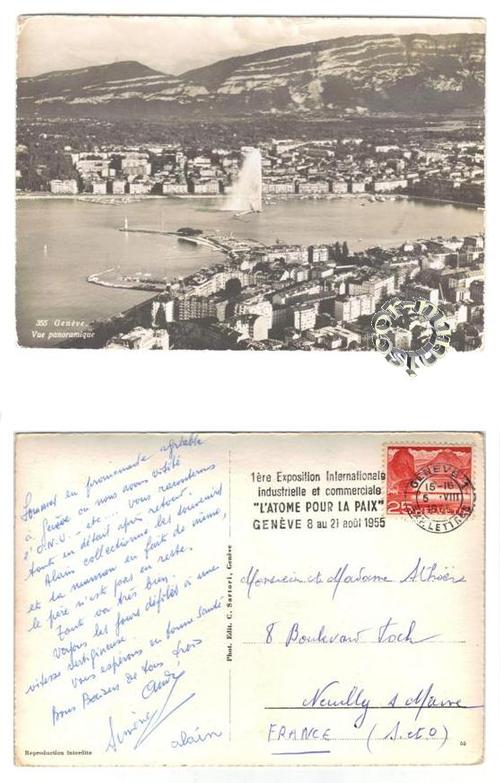 355 Genève.
Vue panoramique
Sommes en promenade agréable
à Genève où nous avons visité
l'O.N.U - etc - vous raconterons
tout en détail après retour.
Alain collectionne les souvenirs
et la maman en fait de même,
le père n'est pas en reste.
Tout va très bien.
Voyons les jours défiler à une
vitesse vertigineuse.
Vous espérons en bonne santé
Bons Baisers de tous trois
Simone
alain
Reproduction interdite
Phot. Edit. C. Sartori, Genève
1ère Exposition Internationale
industrielle et commerciale
"L'ATOME POUR LA PAIX"
GENÈVE 8 au 21 août 1955
GENÈVE 1
15-16
VIII
LETTRES
25
Monsieur et Madame
8 Boulevard Foch
Neuilly s Marne
FRANCE (S.et.O)